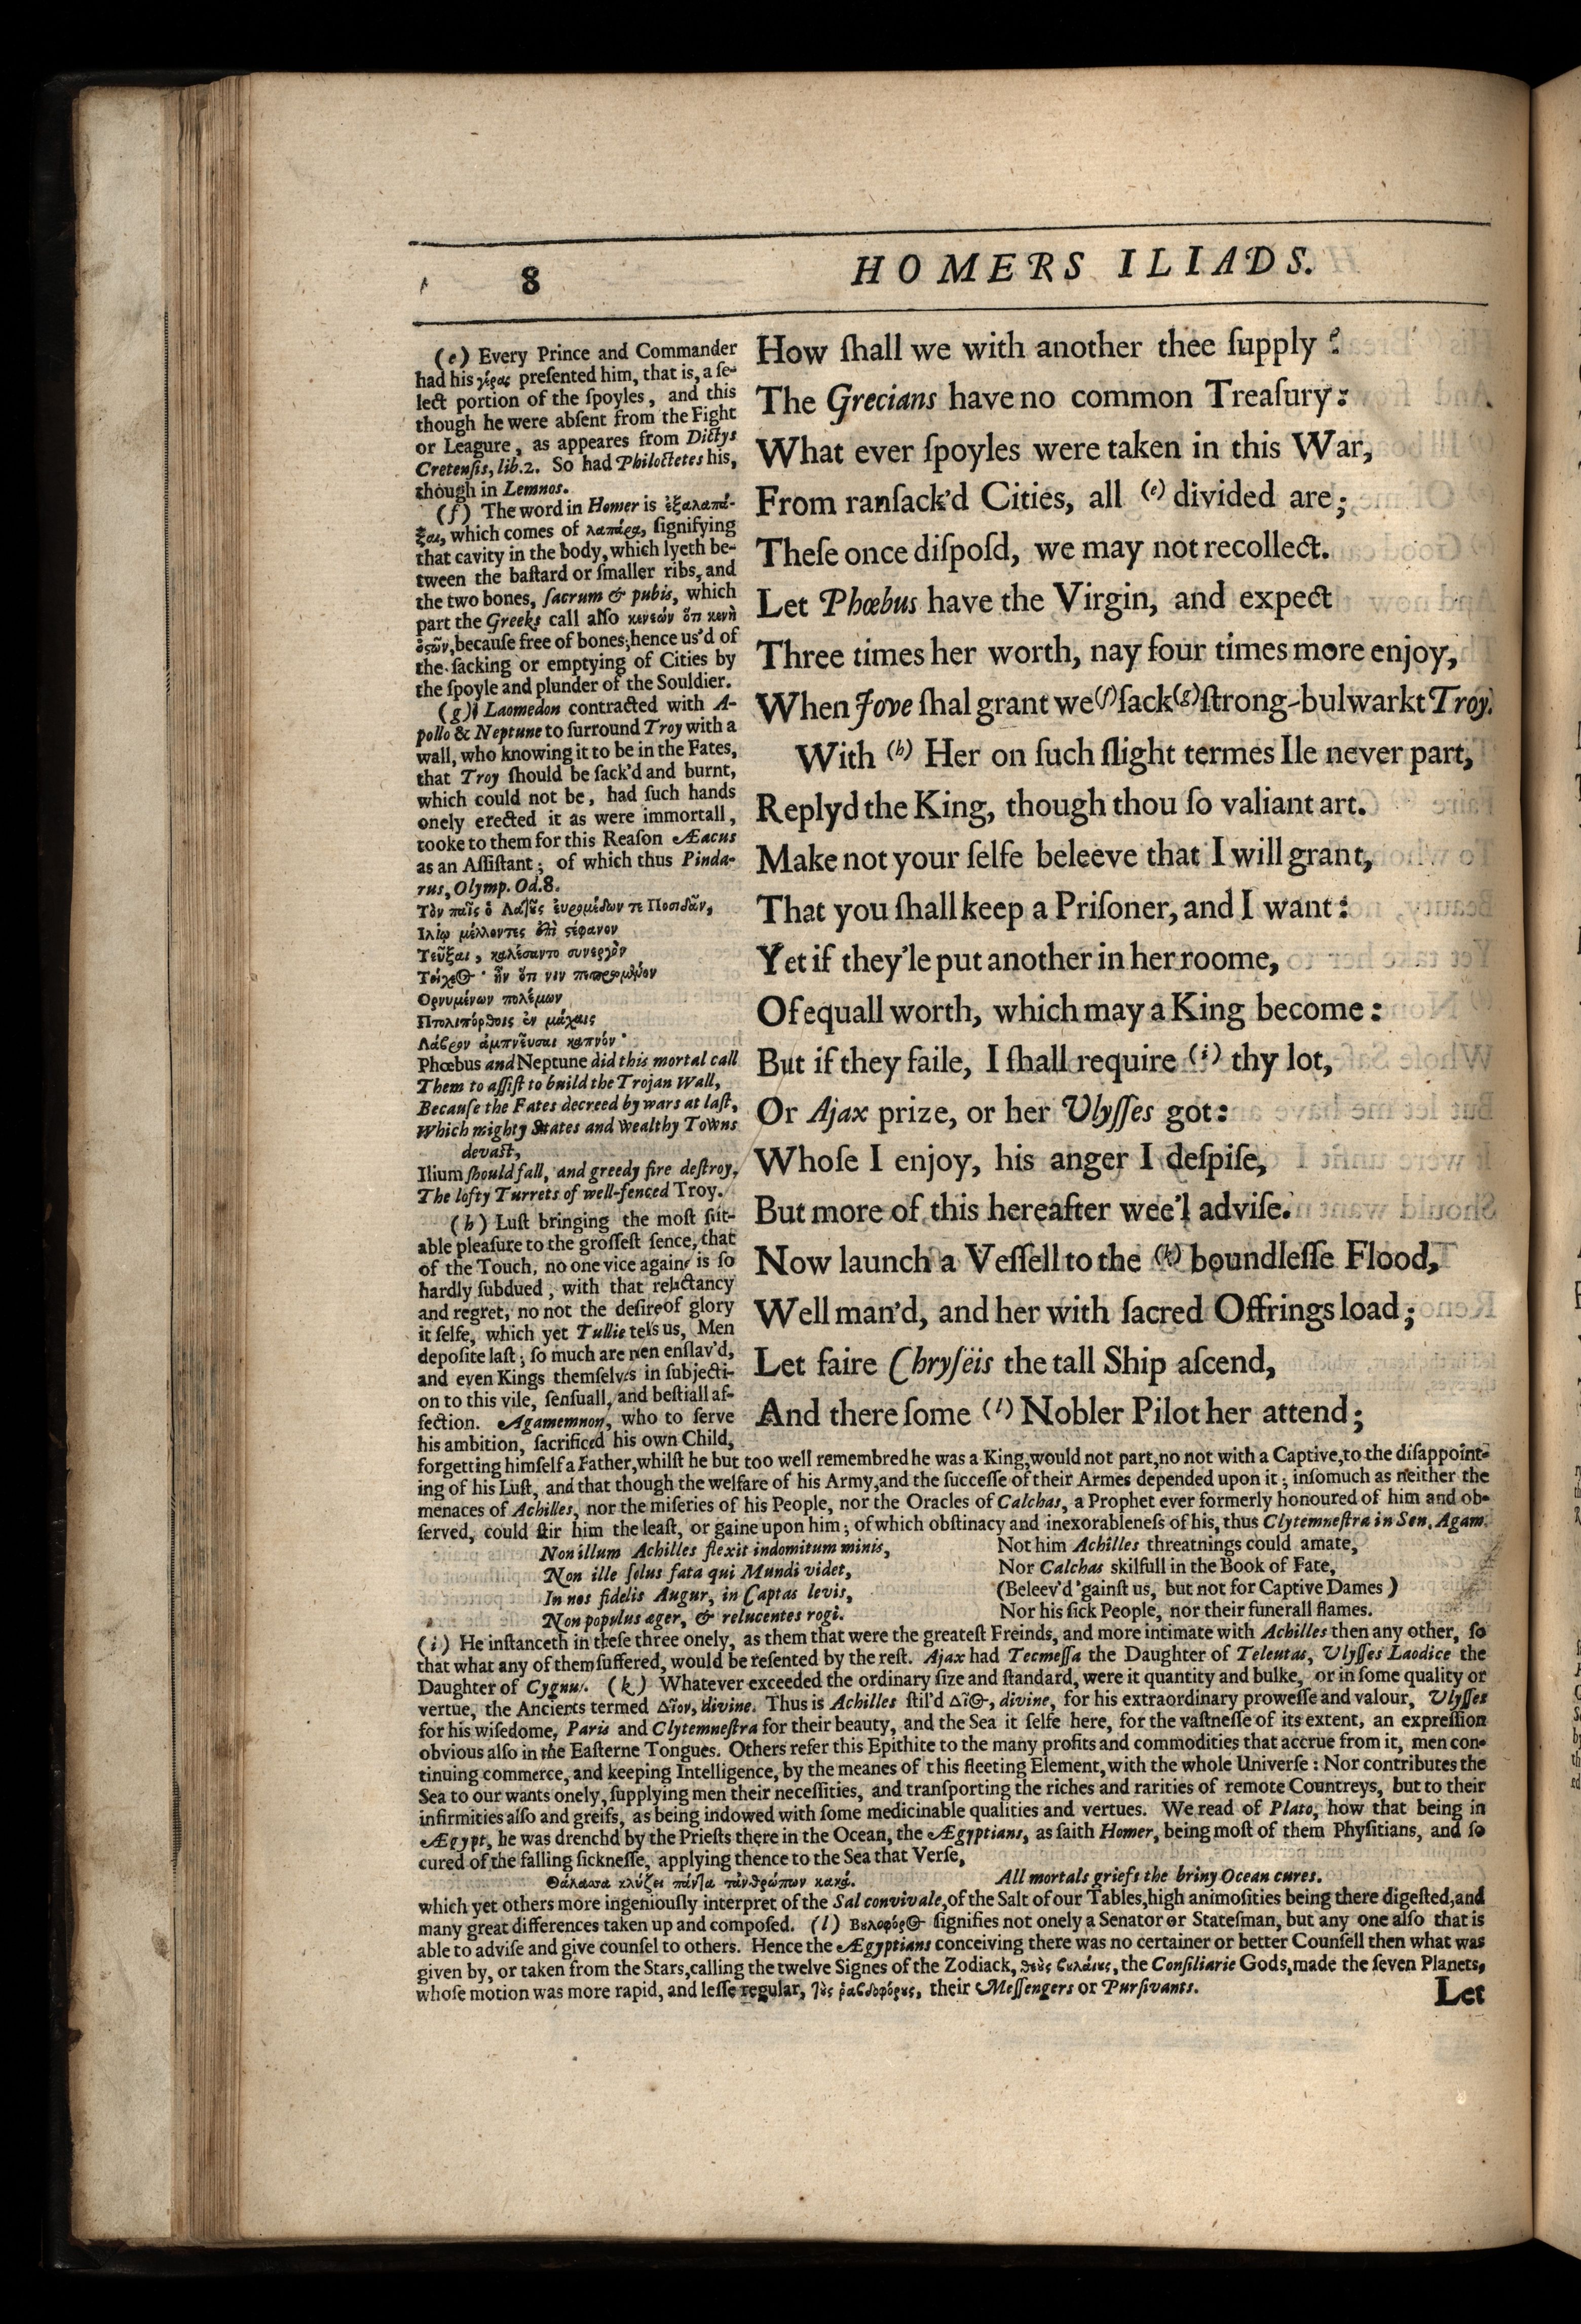 8
HOMERS ILIADS.
How ſhall we with another thee ſupply?
The Grecians have no common Treaſury:
What ever ſpoyles were taken in this War,
From ranſack'd Cities, all (e) divided are;
Theſe once diſpoſd, we may not recollect.
Let Phœbus have the Virgin, and expect
Three times her worth, nay four times more enjoy,
When Jove ſhal grant we (f) ſack (g) ſtrong-bulwarkt Troy.
With (h) Her on ſuch ſlight termes Ile never part,
Replyd the King, though thou ſo valiant art.
Make not your ſelfe beleeve that I will grant,
That you ſhall keep a Priſoner, and I want:
Yet if they'le put another in her roome,
Of equall worth, which may a King become:
But if they faile, I ſhall require (i) thy lot,
Or Ajax prize, or her Ulyſſes got:
Whoſe I enjoy, his anger I deſpiſe,
But more of this hereafter wee'l adviſe.
Now launch a Veſſell to the (k) boundleſſe Flood,
Well man'd, and her with ſacred Offrings load;
Let faire Chryſëis the tall Ship aſcend,
And there ſome (l) Nobler Pilot her attend;
(e) Every Prince and Commander
had his γέρας preſented him, that is, a ſe-
lect portion of the ſpoyles, and this
though he were abſent from the Fight
or Leagure, as appeares from Dictys
Cretenſis, lib.2. So had Philoctetes his,
though in Lemnos.
(f) The word in Homer is ἐξαλαπά-
ξαι, which comes of λαπάρα, ſignifying
that cavity in the body, which lyeth be-
tween the baſtard or ſmaller ribs, and
the two bones, ſacrum & pubis, which
part the Greeks call alſo κενεών ὅτι κενὴ
ὀςῶν, becauſe free of bones; hence us'd of
the ſacking or emptying of Cities by
the ſpoyle and plunder of the Souldier.
(g) Laomedon contracted with A-
pollo & Neptune to ſurround Troy with a
wall, who knowing it to be in the Fates,
that Troy ſhould be ſack'd and burnt,
which could not be, had ſuch hands
onely erected it as were immortall,
tooke to them for this Reaſon Æacus
as an Aſſiſtant; of which thus Pinda-
rus, Olymp. Od.8.
Τὸν παῖς ὁ Λατοῦς ἐυρομέδων τε Ποσιδᾶν,
Ιλίῳ μέλλοντες ἐπὶ ςέφανον
Τεῦξαι, καλέσαντο συνεργὸν
Τείχεος· ἦν ὅτι νιν πεπρωμένον
Ορνυμένων πολέμων
Πτολιπόρθοις ἐν μάχαις
Λάβρον ἀμπνεῦσαι καπνόν·
Phœbus and Neptune did this mortal call
Them to aſſiſt to build the Trojan Wall,
Becauſe the Fates decreed by wars at laſt,
Which mighty States and wealthy Towns
devaſt,
Ilium ſhould fall, and greedy fire deſtroy,
The lofty Turrets of well-fenced Troy.
(h) Luſt bringing the moſt ſuit-
able pleaſure to the groſſeſt ſence, that
of the Touch, no one vice againe is ſo
hardly ſubdued, with that reluctancy
and regret, no not the deſire of glory
it ſelfe, which yet Tullie tels us, Men
depoſite laſt; ſo much are men enſlav'd,
and even Kings themſelves in ſubjecti-
on to this vile, ſenſuall, and beſtiall af-
fection. Agamemnon, who to ſerve
his ambition, ſacrificed his own Child,
forgetting himſelf a Father, whilſt he but too well remembred he was a King, would not part, no not with a Captive, to the diſappoint-
ing of his Luſt, and that though the welfare of his Army, and the ſucceſſe of their Armes depended upon it; inſomuch as neither the
menaces of Achilles, nor the miſeries of his People, nor the Oracles of Calchas, a Prophet ever formerly honoured of him and ob-
ſerved, could ſtir him the leaſt, or gaine upon him; of which obſtinacy and inexorableneſs of his, thus Clytemneſtra in Sen. Agam.
Non illum Achilles flexit indomitum minis,
Non ille ſolus fata qui Mundi videt,
In nos fidelis Augur, in Captas levis,
Non populus æger, & relucentes rogi.
Not him Achilles threatnings could amate,
Nor Calchas skilfull in the Book of Fate,
(Beleev'd 'gainſt us, but not for Captive Dames)
Nor his ſick People, nor their funerall flames.
(i) He inſtanceth in theſe three onely, as them that were the greateſt Freinds, and more intimate with Achilles then any other, ſo
that what any of them ſuffered, would be reſented by the reſt. Ajax had Tecmeſſa the Daughter of Teleutas, Ulyſſes Laodice the
Daughter of Cygnus. (k) Whatever exceeded the ordinary ſize and ſtandard, were it quantity and bulke, or in ſome quality or
vertue, the Ancients termed Δῖον, divine. Thus is Achilles ſtil'd Δῖος, divine, for his extraordinary proweſſe and valour, Ulyſſes
for his wiſedome, Paris and Clytemneſtra for their beauty, and the Sea it ſelfe here, for the vaſtneſſe of its extent, an expreſſion
obvious alſo in the Eaſterne Tongues. Others refer this Epithite to the many profits and commodities that accrue from it, men con-
tinuing commerce, and keeping Intelligence, by the meanes of this fleeting Element, with the whole Univerſe: Nor contributes the
Sea to our wants onely, ſupplying men their neceſſities, and tranſporting the riches and rarities of remote Countreys, but to their
infirmities alſo and greifs, as being indowed with ſome medicinable qualities and vertues. We read of Plato, how that being in
Ægypt, he was drenchd by the Prieſts there in the Ocean, the Ægyptians, as ſaith Homer, being moſt of them Phyſitians, and ſo
cured of the falling ſickneſſe, applying thence to the Sea that Verſe,
Θάλασσα κλύζει πάντα τἀνθρώπων κακά.
All mortals griefs the briny Ocean cures.
which yet others more ingeniouſly interpret of the Sal convivale, of the Salt of our Tables, high animoſities being there digeſted, and
many great differences taken up and compoſed. (l) Βȣλοφόρος ſignifies not onely a Senator or Stateſman, but any one alſo that is
able to adviſe and give counſel to others. Hence the Ægyptians conceiving there was no certainer or better Counſell then what was
given by, or taken from the Stars, calling the twelve Signes of the Zodiack, θεȣ̀ς βȣλαίȣς, the Conſiliarie Gods, made the ſeven Planets,
whoſe motion was more rapid, and leſſe regular, τȣ̀ς ῥαβδοφόρȣς, their Meſſengers or Purſivants.
Let